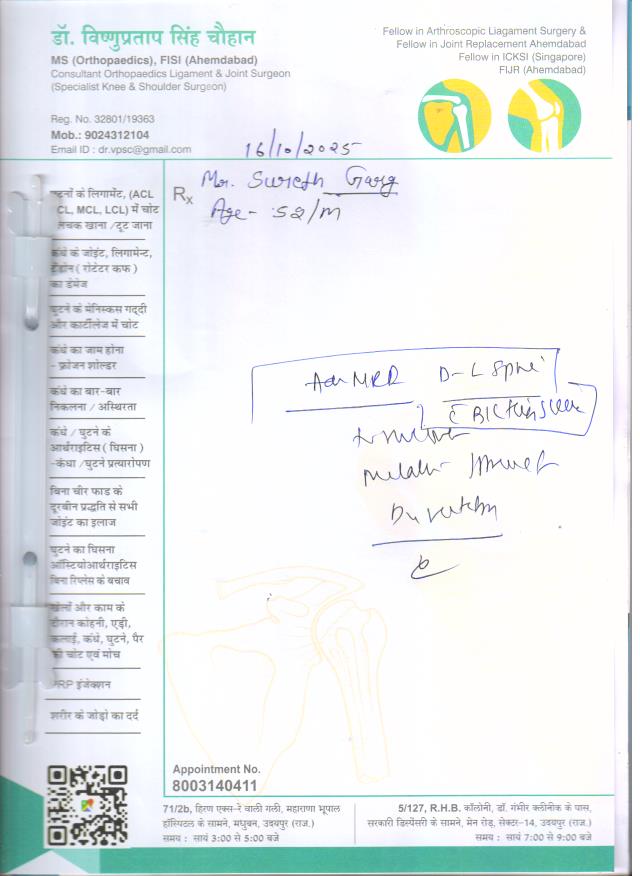 डॉ. विष्णुप्रताप सिंह चौहान
MS (Orthopaedics), FISI (Ahemdabad)
Consultant Orthopaedics Ligament & Joint Surgeon
(Specialist Knee & Shoulder Surgeon)
Reg. No. 32801/19363
Mob.: 9024312104
Email ID : dr.vpsc@gmail.com
Fellow in Arthroscopic Liagament Surgery &
Fellow in Joint Replacement Ahemdabad
Fellow in ICKSI (Singapore)
FIJR (Ahemdabad)
16/10/2025
Rx Mr. Suresh Garg
Age - 52/M
घुटनों के लिगामेंट, (ACL
PCL, MCL, LCL) में चोट
लचक खाना /टूट जाना
कंधे के जोइंट, लिगामेन्ट,
टेंडोन ( रोटेटर कफ )
का डेमेज
घुटने के मेनिस्कस गद्दी
और कार्टीलेज में चोट
कंधे का जाम होना
- फ्रोजन शोल्डर
कंधे का बार-बार
निकलना / अस्थिरता
कंधे / घुटने के
आर्थराइटिस ( घिसना )
-कंधा /घुटने प्रत्यारोपण
बिना चीर फाड के
दूरबीन प्रद्धति से सभी
जोइंट का इलाज
घुटने का घिसना
ऑस्टियोआर्थराइटिस
बिना रिप्लेस के बचाव
खेलों और काम के
दौरान कोहनी, एड़ी,
कलाई, कंधे, घुटने, पैर
की चोट एवं मोच
PRP इंजेक्शन
शरीर के जोड़ो का दर्द
D-L Spine
Appointment No.
8003140411
71/2b, हिरण एक्स-रे वाली गली, महाराणा भूपाल
हॉस्पिटल के सामने, मधुबन, उदयपुर (राज.)
समय : सायं 3:00 से 5:00 बजे
5/127, R.H.B. कॉलोनी, डॉ. गंभीर क्लीनीक के पास,
सरकारी डिस्पेंसरी के सामने, मेन रोड, सेक्टर-14, उदयपुर (राज.)
समय : सायं 7:00 से 9:00 बजे